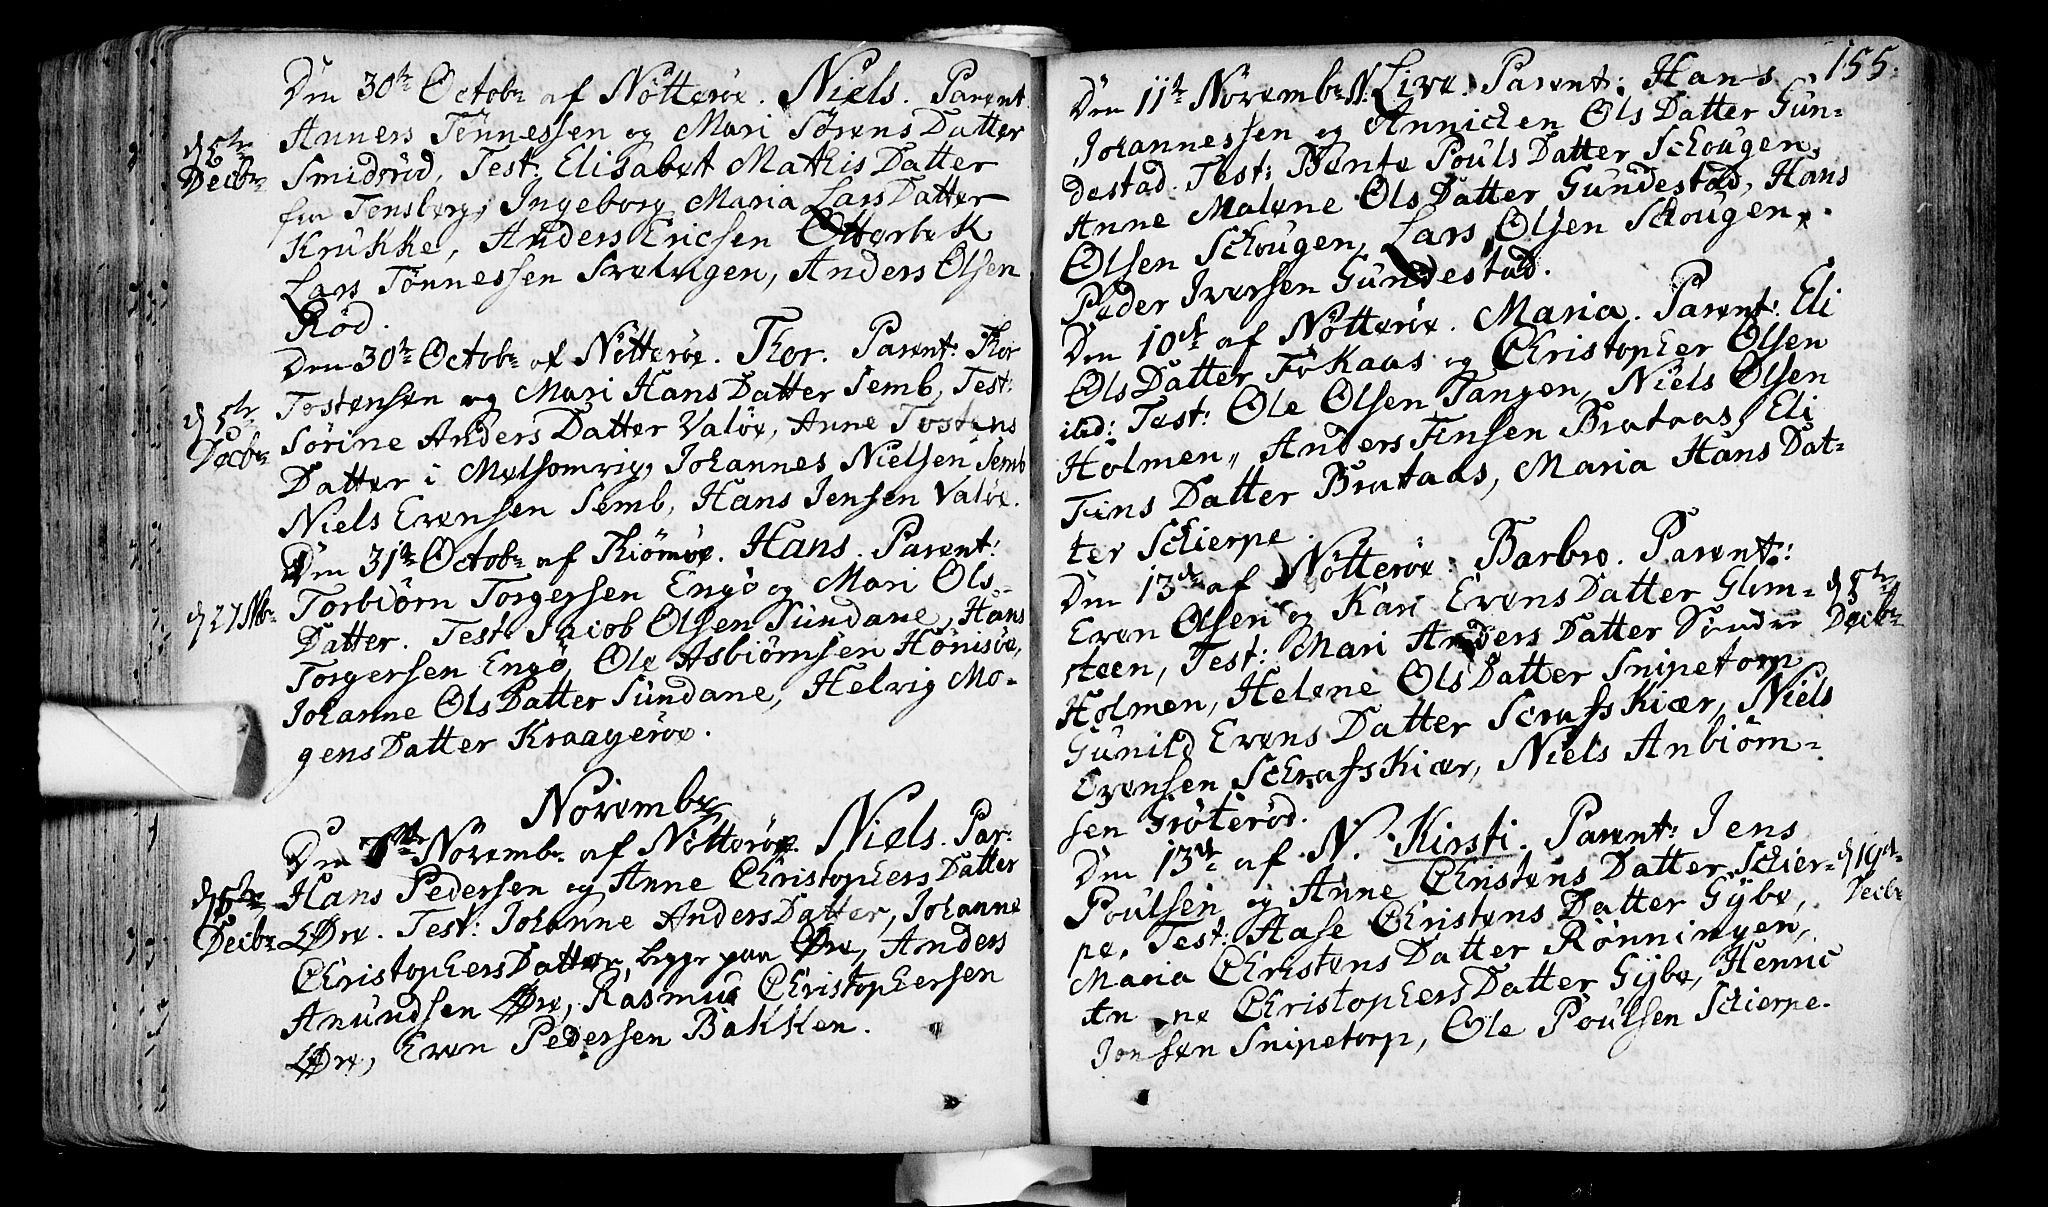 Den 30te Octobr af Nötteröe. Niels. Parent
Anners Tönnessen og Mari Sörens Datter
d 5te
Decbr
Smidsröd, Test: Elisabet Mathis Datter
fra Tensberg, Ingeborg Maria Lars Datter
Krukke, Anders Ericsen Otterbek
Lars Tönnessen Svelvigen, Anders Olsen
Röd.
Den 30te Octobr af Nötteröe. Thor. Parent: Thor
Tostensen og Mari Hans Datter Semb, Test:
d 5te
Decbr
Sörine Anders Datter Valöe, Anne Tostens
Datter i Melsomvig, Johannes Nielsen Semb
Niels Evensen Semb, Hans Jensen Valöe.
Den 31te Octobr af Thiömöe. Hans. Parent:
d 27 Nbr
Torbiörn Torgersen Engö og Mari Ols-
Datter. Test: Jacob Olsen Sundane, Hans
Torgersen Engö, Ole Asbiörnsen Hönisöe,
Johanne Ols Datter Sundane, Helvig Mo-
gens Datter Kraageröe.
Novembr
Den Novembr af Nötteröe. Niels. Par:
Hans Pedersen og Anne Christophers Datter
d 5te
Decbr
Øre. Test: Johanne Anders Datter, Johanne
Christophers Datter, begge paa Øre, Anders
Anundsen Øre, Rasmus Christophersen
Øre, Even Pedersen Bakken.
155.
Den 11te Novembr N. Live. Parent: Hans
Johannessen og Annichen Ols Datter Gun-
destad. Test: Bente Pouls Datter Schougen,
Anne Malene Ols Datter Gundestad, Hans
Olsen Schougen, Lars Olsen Schougen,
Peder Iversen Gundestad.
Den 10de af Nötteröe. Maria. Parent: Eli
Ols Datter Fokaas og Christopher Olsen
ibid: Test: Ole Olsen Tangen, Niels Olsen
Holmen, Anders Finsen Brataas, Eli
Fins Datter Brataas, Maria Hans Dat-
ter Schierpe.
Den 13de af Nötteröe. Barbro. Parent:
Even Olsen og Kari Evens Datter Glom-
d 5te
Decbr
steen, Test: Mari Anders Datter Söndre
Holmen, Helene Ols Datter Snipetorp
Gunild Evens Datter Scrafskiær, Niels
Evensen Schrafskiær, Niels Anbiörn-
sen Gröteröd.
Den 13de af N. Kirsti. Parent: Jens
Poulsen og Anne Christens Datter Schier-
d 19de
Decbr
pe. Test: Aase Christens Datter Gÿbe,
Maria Christens Datter Rönningen,
Anne Christophers Datter Gÿbe, Henric
Jonsen Snipetorp, Ole Poulsen Schierpe.